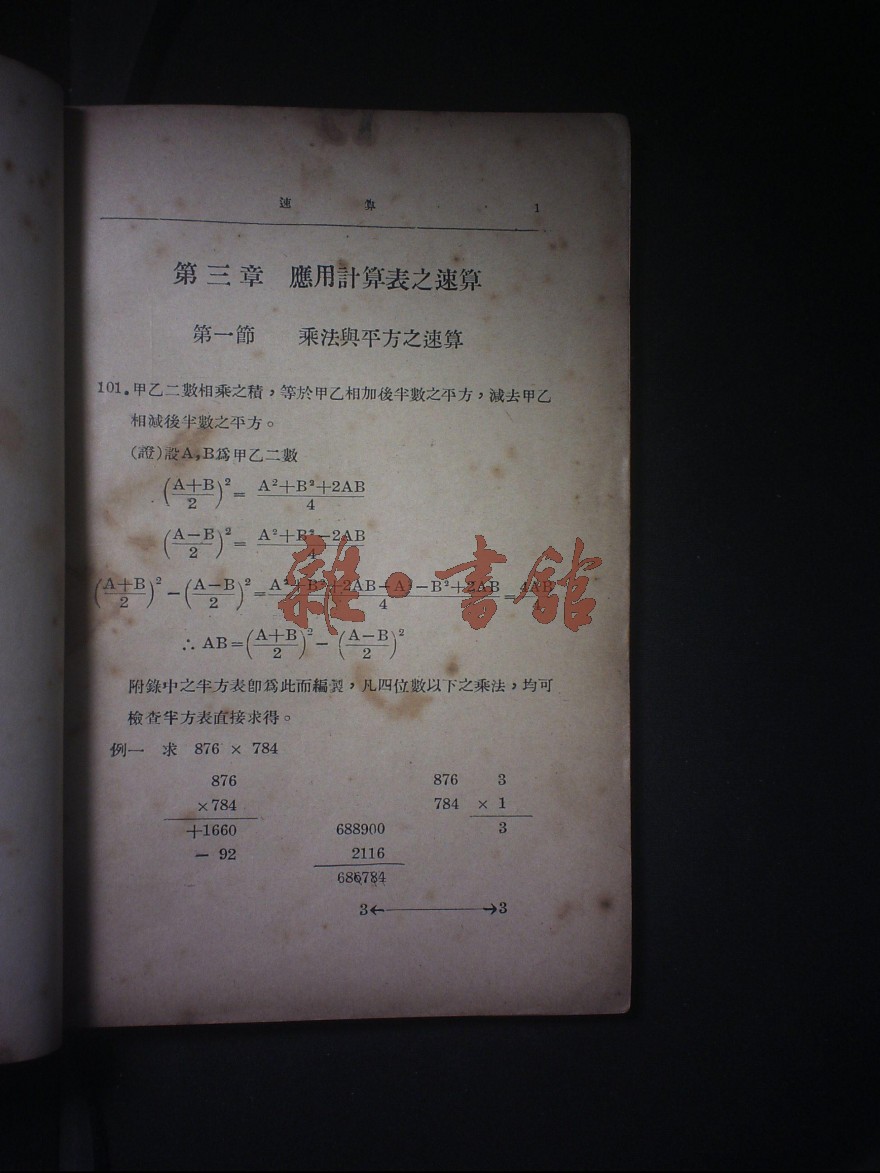 速算 1
第三章 應用計算表之速算
第一節 乘法與平方之速算
101.甲乙二數相乘之積,等於甲乙相加後半數之平方,減去甲乙
相減後半數之平方。
(證)設A,B爲甲乙二數
((A+B)/2)²=(A²+B²+2AB)/4
((A-B)/2)²=(A²+B²-2AB)/4
((A+B)/2)²-((A-B)/2)²=(A²+B²+2AB-A²-B²+2AB)/4=4AB
∴ AB=((A+B)/2)²-((A-B)/2)²
附錄中之半方表卽爲此而編製,凡四位數以下之乘法,均可
檢查半方表直接求得。
例一 求 876 × 784
876 876 3
×784 784 × 1
+1660 688900 3
- 92 2116
686784
3←→3
雜·書館